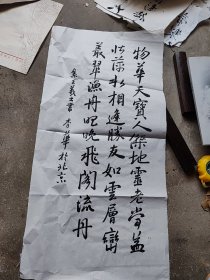 物華天寶人傑地靈老當益
壯萍水相逢勝友如雲層巒
聳翠漁舟唱晚飛閣流丹
書 李華於北京